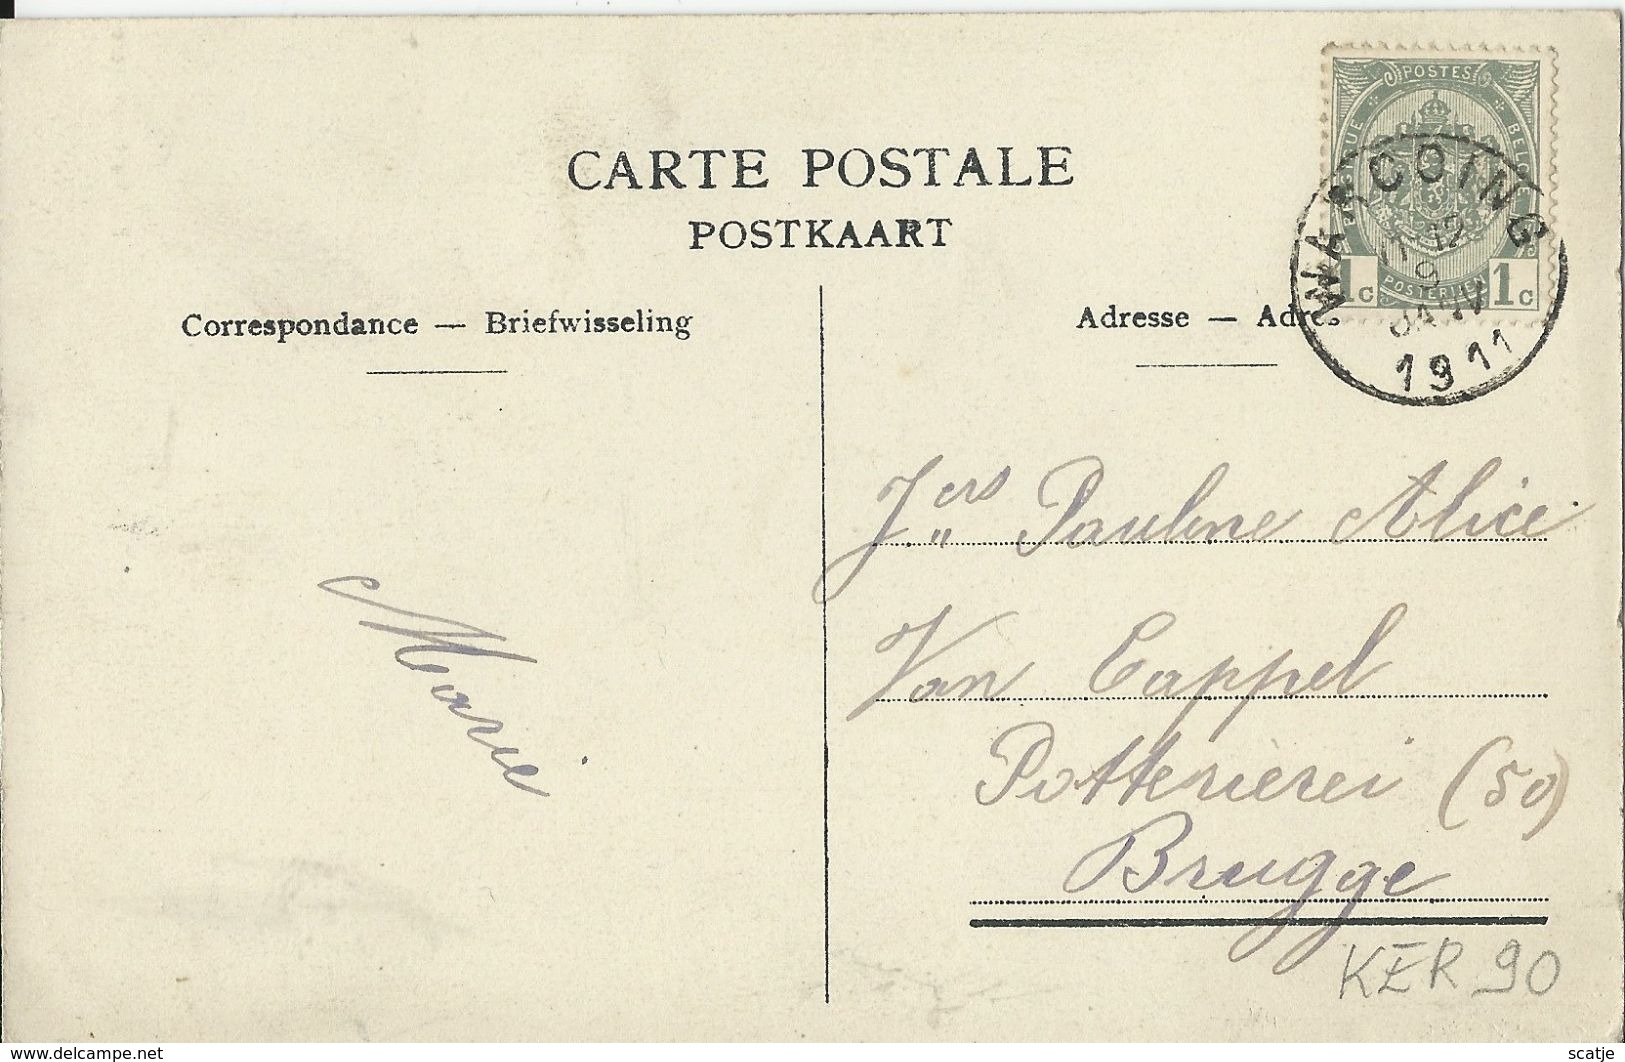 CARTE POSTALE
POSTKAART
Correspondance — Briefwisseling
Adresse — Adres
POSTES
BELGIQUE
POSTERIJEN
1c 1c
WARCOING
12
9
JANV
1911
Jers Pauline Alice
Van Cappel
Potterierei (50)
Brugge
Marie
KER 90
www.delcampe.net
scatje